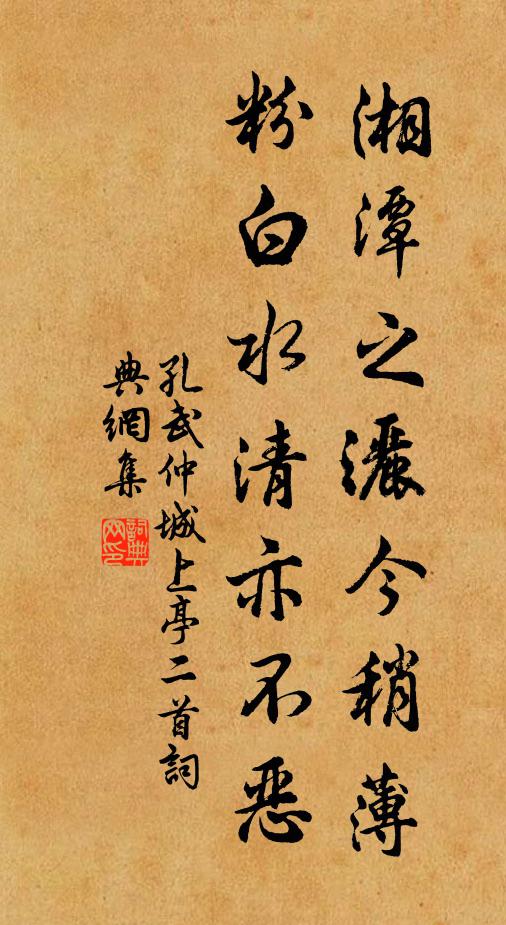 湘潭之灑今稍薄
粉白水清亦不恶
孔武仲城上亭二首詞
典網集
詞典網印